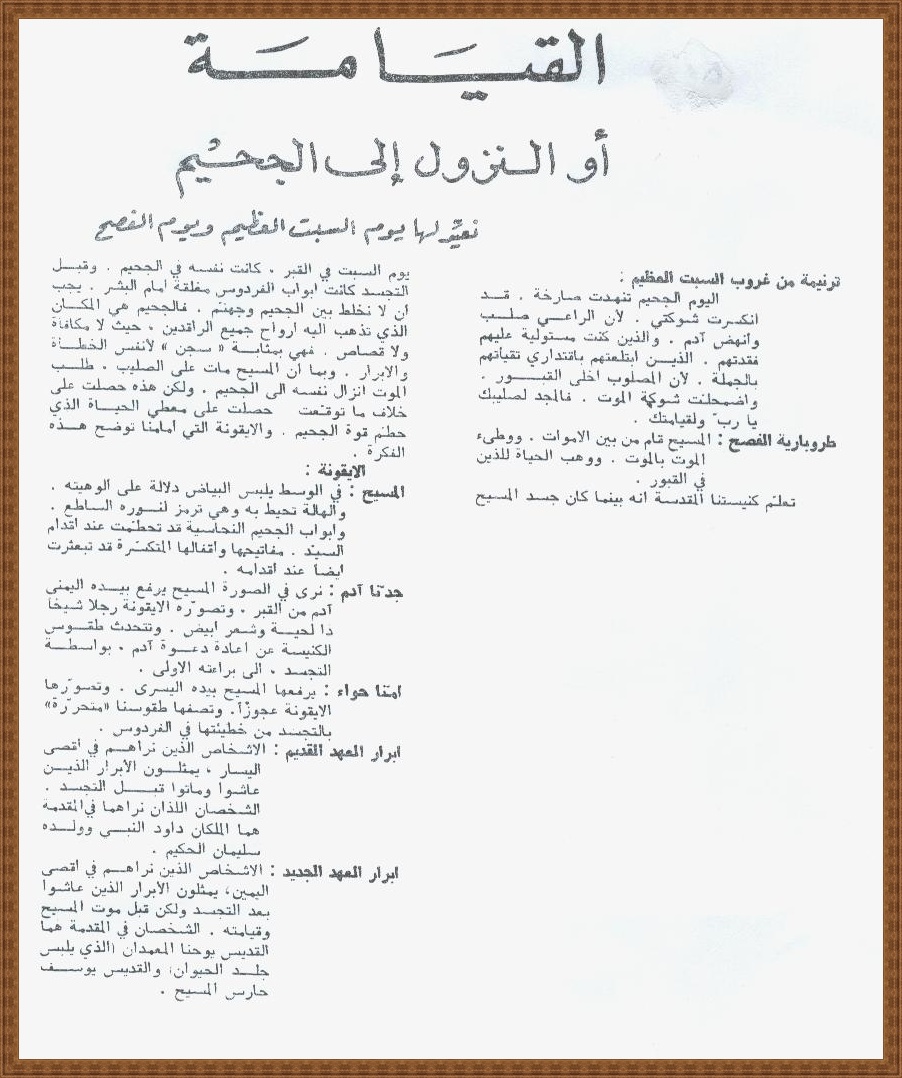 القيامة
أو النزول إلى الجحيم
نعيّد لها يوم السبت العظيم ويوم الفصح
ترنيمة من غروب السبت العظيم :
اليوم الجحيم تنهدت صارخة . قد
انكسرت شوكتي . لأن الراعي صلب
وأنهض آدم . والذين كنت مستولية عليهم
فقدتهم . الذين ابتلعتهم باقتداري تقيأتهم
بالجملة . لأن المصلوب اخلى القبور .
واضمحلت شوكة الموت . فالمجد لصليبك
يا ربّ ولقيامتك .
طروبارية الفصح : المسيح قام من بين الاموات . ووطىء
الموت بالموت . ووهب الحياة للذين
في القبور .
تعلم كنيستنا المقدسة انه بينما كان جسد المسيح
يوم السبت في القبر ، كانت نفسه في الجحيم . وقبل
التجسد كانت ابواب الفردوس مغلقة امام البشر . يجب
ان لا نخلط بين الجحيم وجهنم . فالجحيم هي المكان
الذي تذهب اليه ارواح جميع الراقدين ، حيث لا مكافأة
ولا قصاص . فهي بمثابة « سجن » لأنفس الخطأة
والابرار . وبما ان المسيح مات على الصليب ، طلب
الموت انزال نفسه الى الجحيم . ولكن هذه حصلت على
خلاف ما توقعت حصلت على معطي الحياة الذي
حطم قوة الجحيم . والايقونة التي أمامنا توضح هذه
الفكرة .
الايقونة :
المسيح : في الوسط يلبس البياض دلالة على الوهيته .
والهالة تحيط به وهي ترمز لنوره الساطع .
وابواب الجحيم النحاسية قد تحطمت عند اقدام
السيّد . مفاتيحها واقفالها المتكسّرة قد تبعثرت
ايضاً عند اقدامه .
جدّنا آدم : نرى في الصورة المسيح يرفع بيده اليمنى
آدم من القبر ، وتصوّره الايقونة رجلا شيخا
ذا لحية وشعر ابيض . وتتحدث طقوس
الكنيسة عن اعادة دعوة آدم ، بواسطة
التجسد ، الى براءته الاولى .
امّنا حواء : يرفعها المسيح بيده اليسرى . وتصوّرها
الايقونة عجوزاً. وتصفها طقوسنا «متحرّرة»
بالتجسّد من خطيئتها في الفردوس .
ابرار العهد القديم : الاشخاص الذين نراهم في أقصى
اليسار ، يمثلون الأبرار الذين
عاشوا وماتوا قبل التجسد .
الشخصان اللذان نراهما في المقدمة
هما الملكان داود النبي وولده
سليمان الحكيم .
ابرار العهد الجديد : الاشخاص الذين نراهم في أقصى
اليمين، يمثلون الأبرار الذين عاشوا
بعد التجسد ولكن قبل موت المسيح
وقيامته . الشخصان في المقدمة هما
القديس يوحنا المعمدان (الذي يلبس
جلد الحيوان) والقديس يوسف
حارس المسيح .